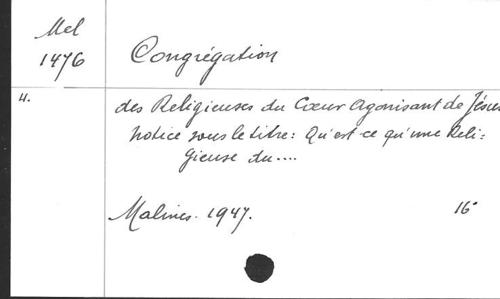 Mel
1476
Congrégation
4.
des Religieuses du Cœur Agonisant de Jésus
Notice sous le titre: Qu'est-ce qu'une Reli-
gieuse du....
Malines. 1947.
16°